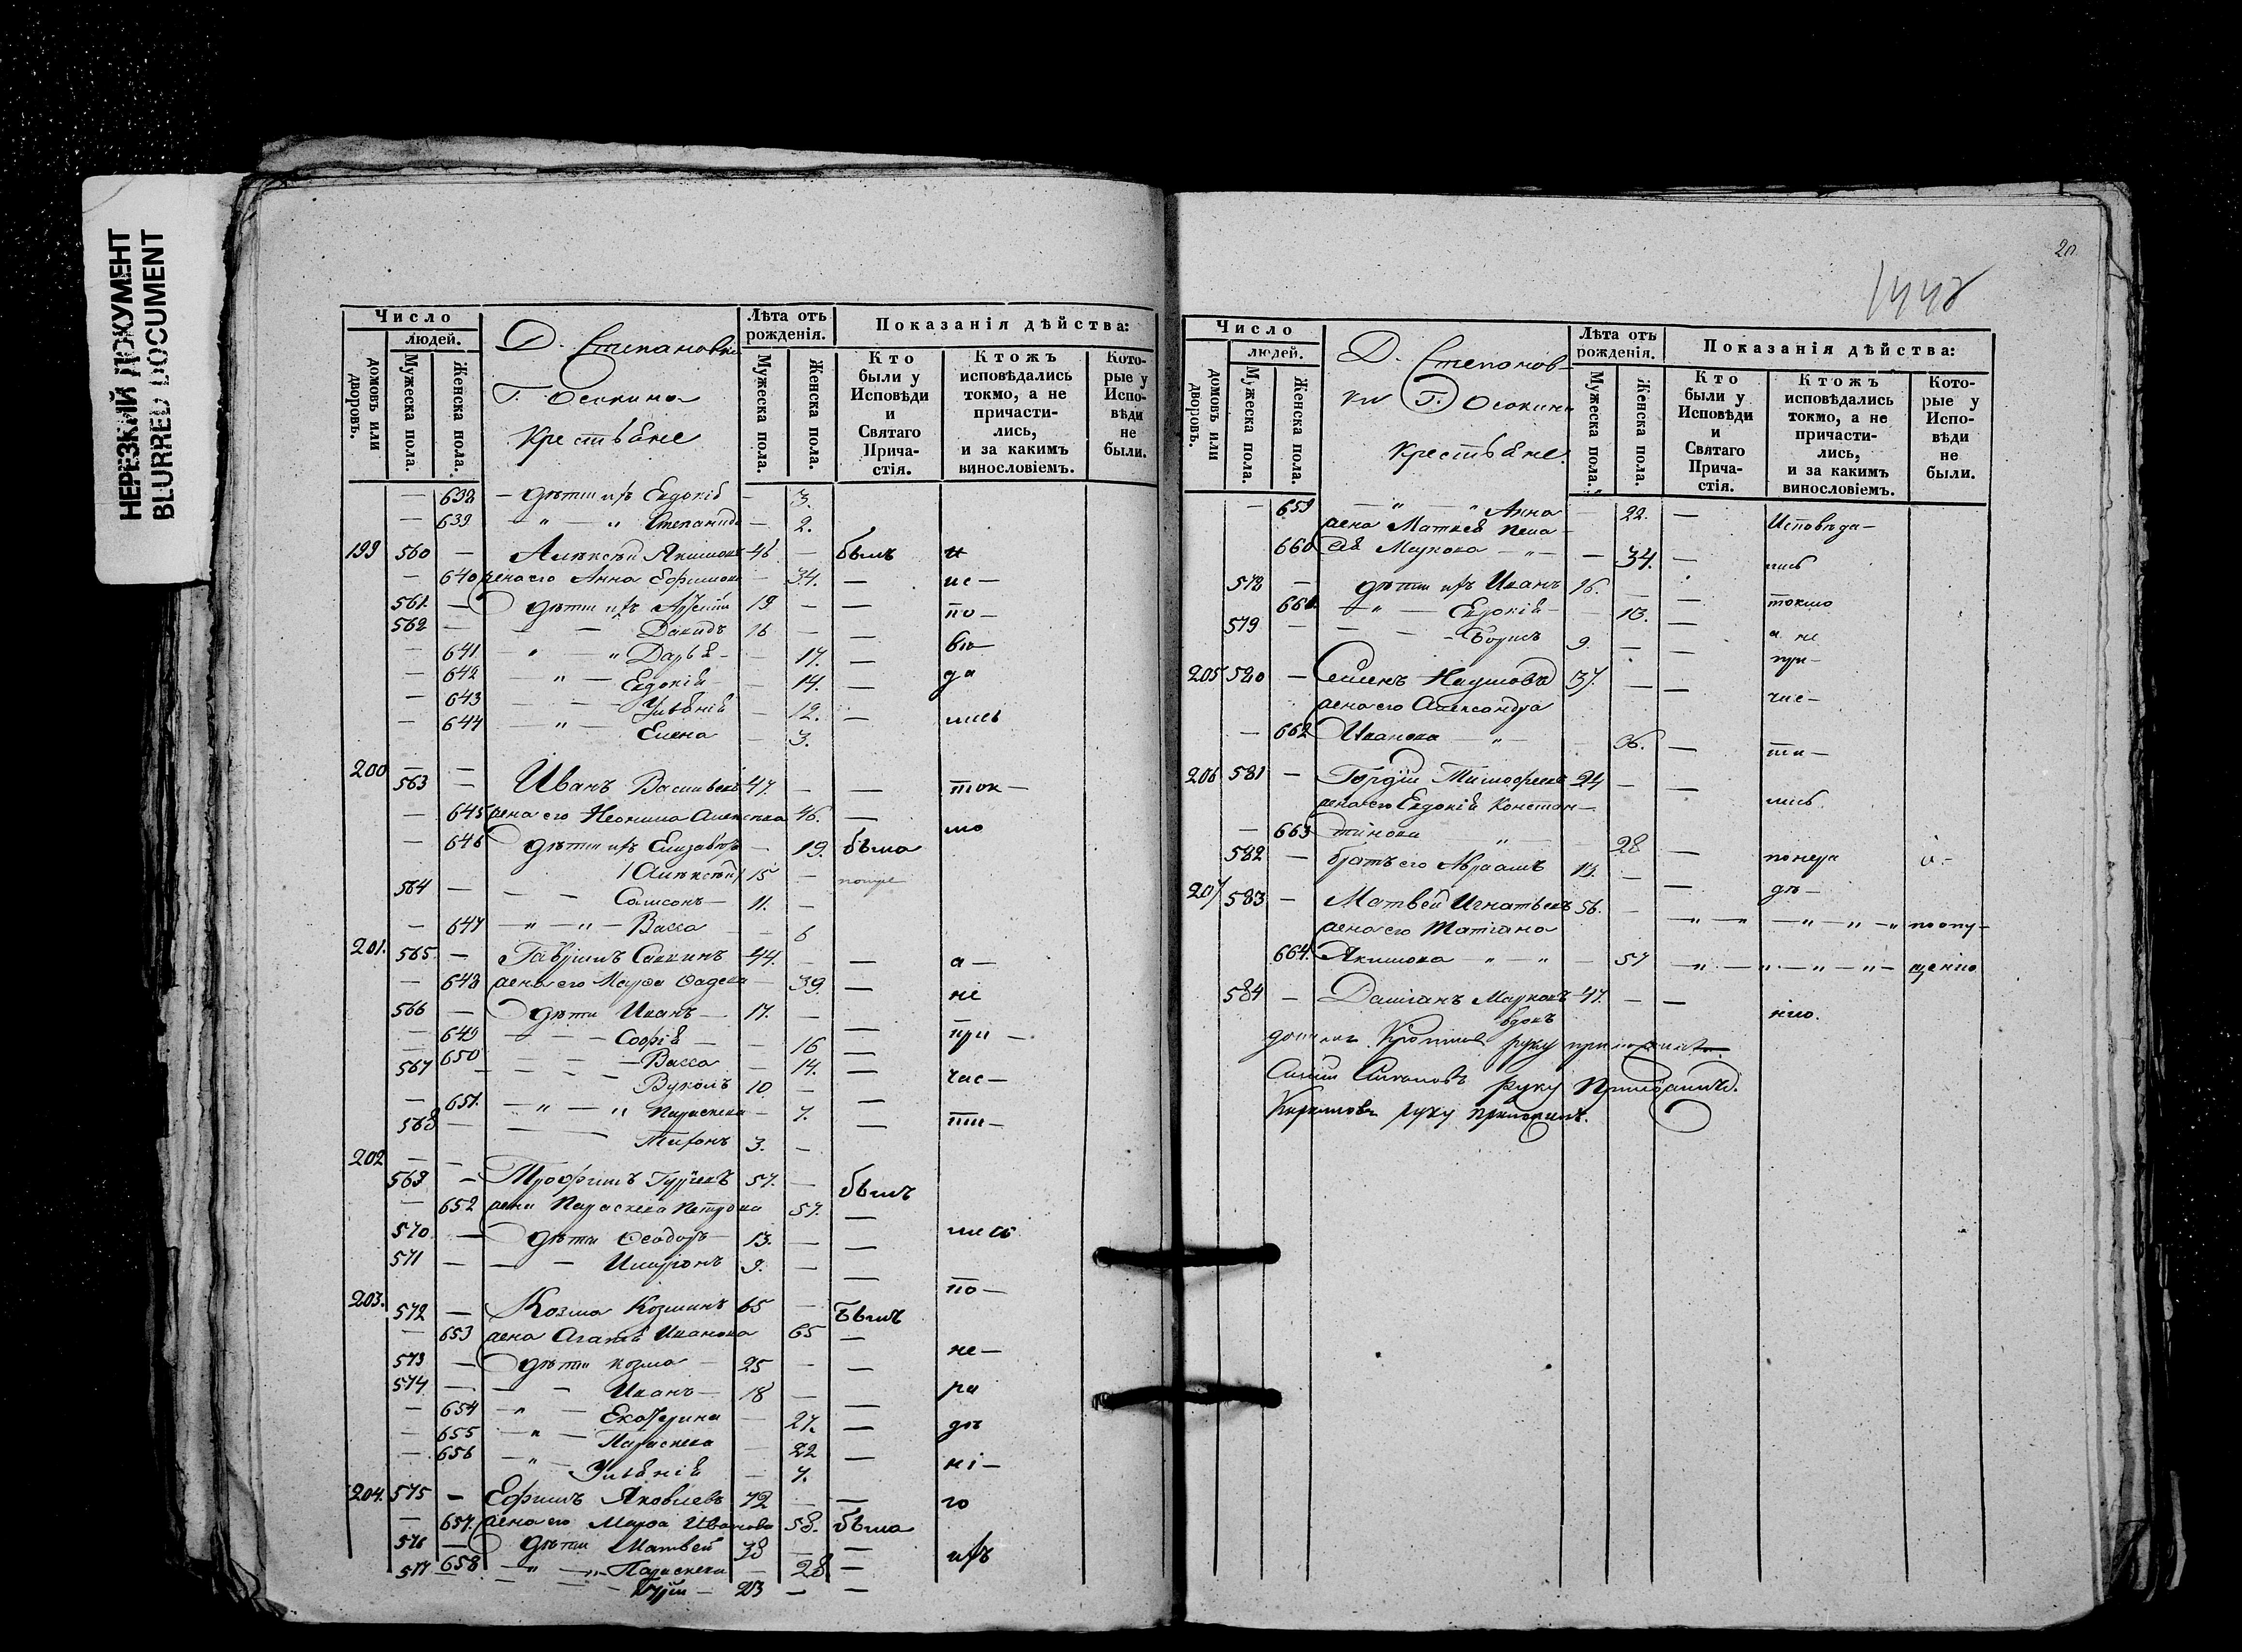 НЕРЕЗКИЙ ДОКУМЕНТ
BLURRED DOCUMENT
Число
людей.
домовъ или дворовъ.
Мужеска пола.
Женска пола.
Д. Степановки
Г. Осокина
Крестьяне
Лѣта отъ рожденія.
Мужеска пола.
Женска пола.
Показанія дѣйства:
Кто были у Исповѣди и Святаго Прича-стія.
Ктожъ исповѣдались токмо, а не причасти-лись, и за какимъ винословіемъ.
Кото-рые у Испо-вѣди не были.
— 638 — дѣти ихъ Евдокія — 3.
— 639 — " — " Степанида — 2.
199 560 — Алексѣй Акимовъ 46 — былъ и
— 640 жена его Анна Ефимова — 34. — ис—
561. — дѣти ихъ 19 — — по—
562 — — — Давидъ 16 — —
— 641 — " — " Дарья — — 17. — вѣ
— 642 " — Евдокія — 14. — да
— 643 — — Ульянія — 12. —
— 644 — " — Елена — 3. лись
200 563 — Иванъ Васильевъ 47. — — ток—
— 645 жена его Неонила Алексѣева 46. — мо
— 646 дѣти ихъ Елизавета — 19. была
Алексѣй 15 —
564 — — — Самсонъ — 11. —
— 647 — " — " — Васса — — 6
201. 565. — Гаврилъ Саввинъ 44. — — а—
— 648 жена его Марфа Фадеева — 39. — не
566 — дѣти Иванъ — 17. — —
— 649 — — — Софія — — 16 — при—
— 650 — — — Васса — 14. —
567 — — — Вуколъ 10. — — час—
— 651. — " — " Параскева — 7. —
568 — — — Тихонъ 3. — ти—
202 — —
569 — Трофимъ Гурьевъ 57. — былъ
— 652 жена Параскева Петрова 57. —
570 — дѣти Ѳеодоръ — 13. — — лись
571 — — — 9. — —
203. 572 — Козма Козминъ 65 — былъ по—
— 653 жена Агафія Иванова 65 —
573 — дѣти Козма — 25 — — не—
574 — — — Иванъ — 18 — — ра
— 654 — " — Екатерина — 27. — дѣ
— 655 — " — Параскева — 22 —
— 656 — " — Ульянія — 7. ні—
204. 575 — Ефимъ Яковлевъ 72 — — го
— 657. жена его Марфа Иванова 58. была
576 — дѣти Матвей 38 — — ихъ
— 658 — " — " — Параскева — 28 —
577 — — — Гурій — 23 — —
20
1448
Число
людей.
домовъ или дворовъ.
Мужеска пола.
Женска пола.
Д. Степанов-
ки Г. Осокина
Крестьяне.
Лѣта отъ рожденія.
Мужеска пола.
Женска пола.
Показанія дѣйства:
Кто были у Исповѣди и Святаго Прича-стія.
Ктожъ исповѣдались токмо, а не причасти-лись, и за какимъ винословіемъ.
Кото-рые у Испо-вѣди не были.
— 659 — " — " Анна — 22. — Исповѣда—
жена Матвея
660 Маркова — " — — 34. — лись
578 — дѣти ихъ Иванъ 16. — —
661 — " — Евдокія — — 13. — токмо
579 — — — Борисъ 9. — — а не
при—
205 580 — Семенъ Наумовъ 37. — — час—
жена его Александра
— 662 Иванова — " — — 36. — ти—
206 581 — Гордѣй Тимофеевъ 24 — — лись.
жена его Евдокія Констан—
— 663 тинова — " — 28 —
582 — братъ его Авраамъ 13. — — понера
207 583 — Матвей Игнатьевъ 56. — — " — " дѣ— — " — " — " по опу—
жена его Татіана
664. Акимова — " — " — 57 — " — " — " — " — щенію
584 — Даміанъ Марковъ 47. — — нію.
вдовъ
руку приложилъ.
руку приложилъ.
руку приложилъ.